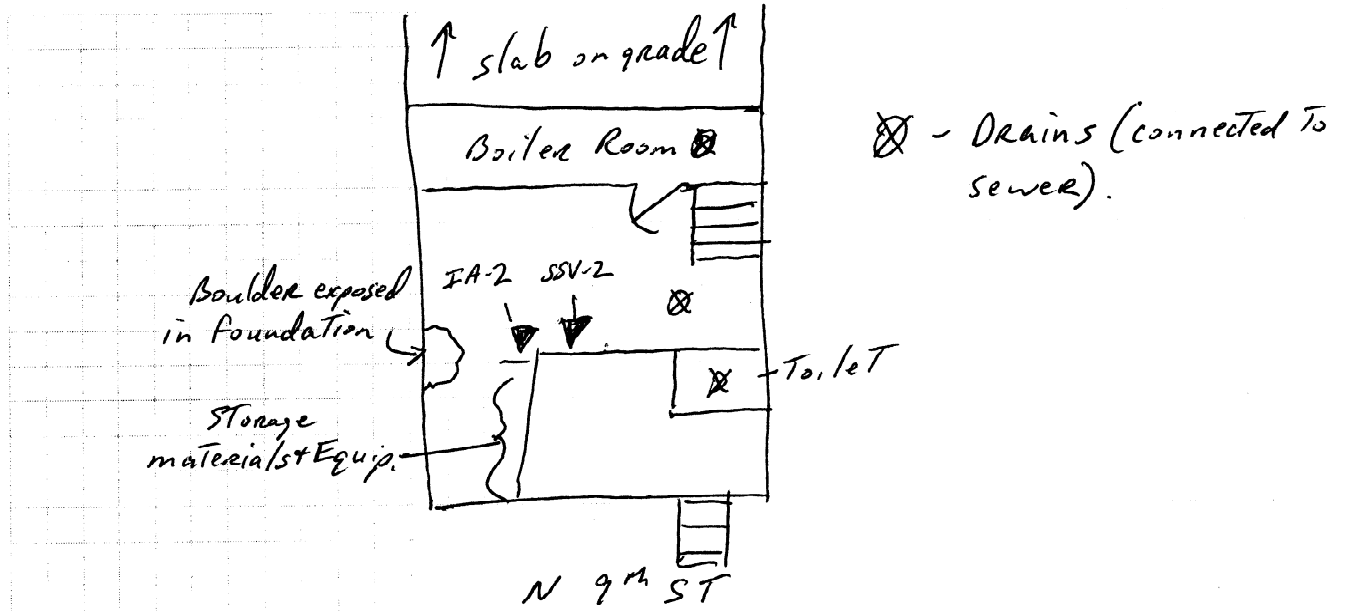 ↑ slab on grade ↑
Boiler Room ⊗
⊗ - Drains (connected To
sewer).
IA-2 SSV-2
Boulder exposed
in foundation
Toilet
Storage
materials + Equip.
N 9th ST